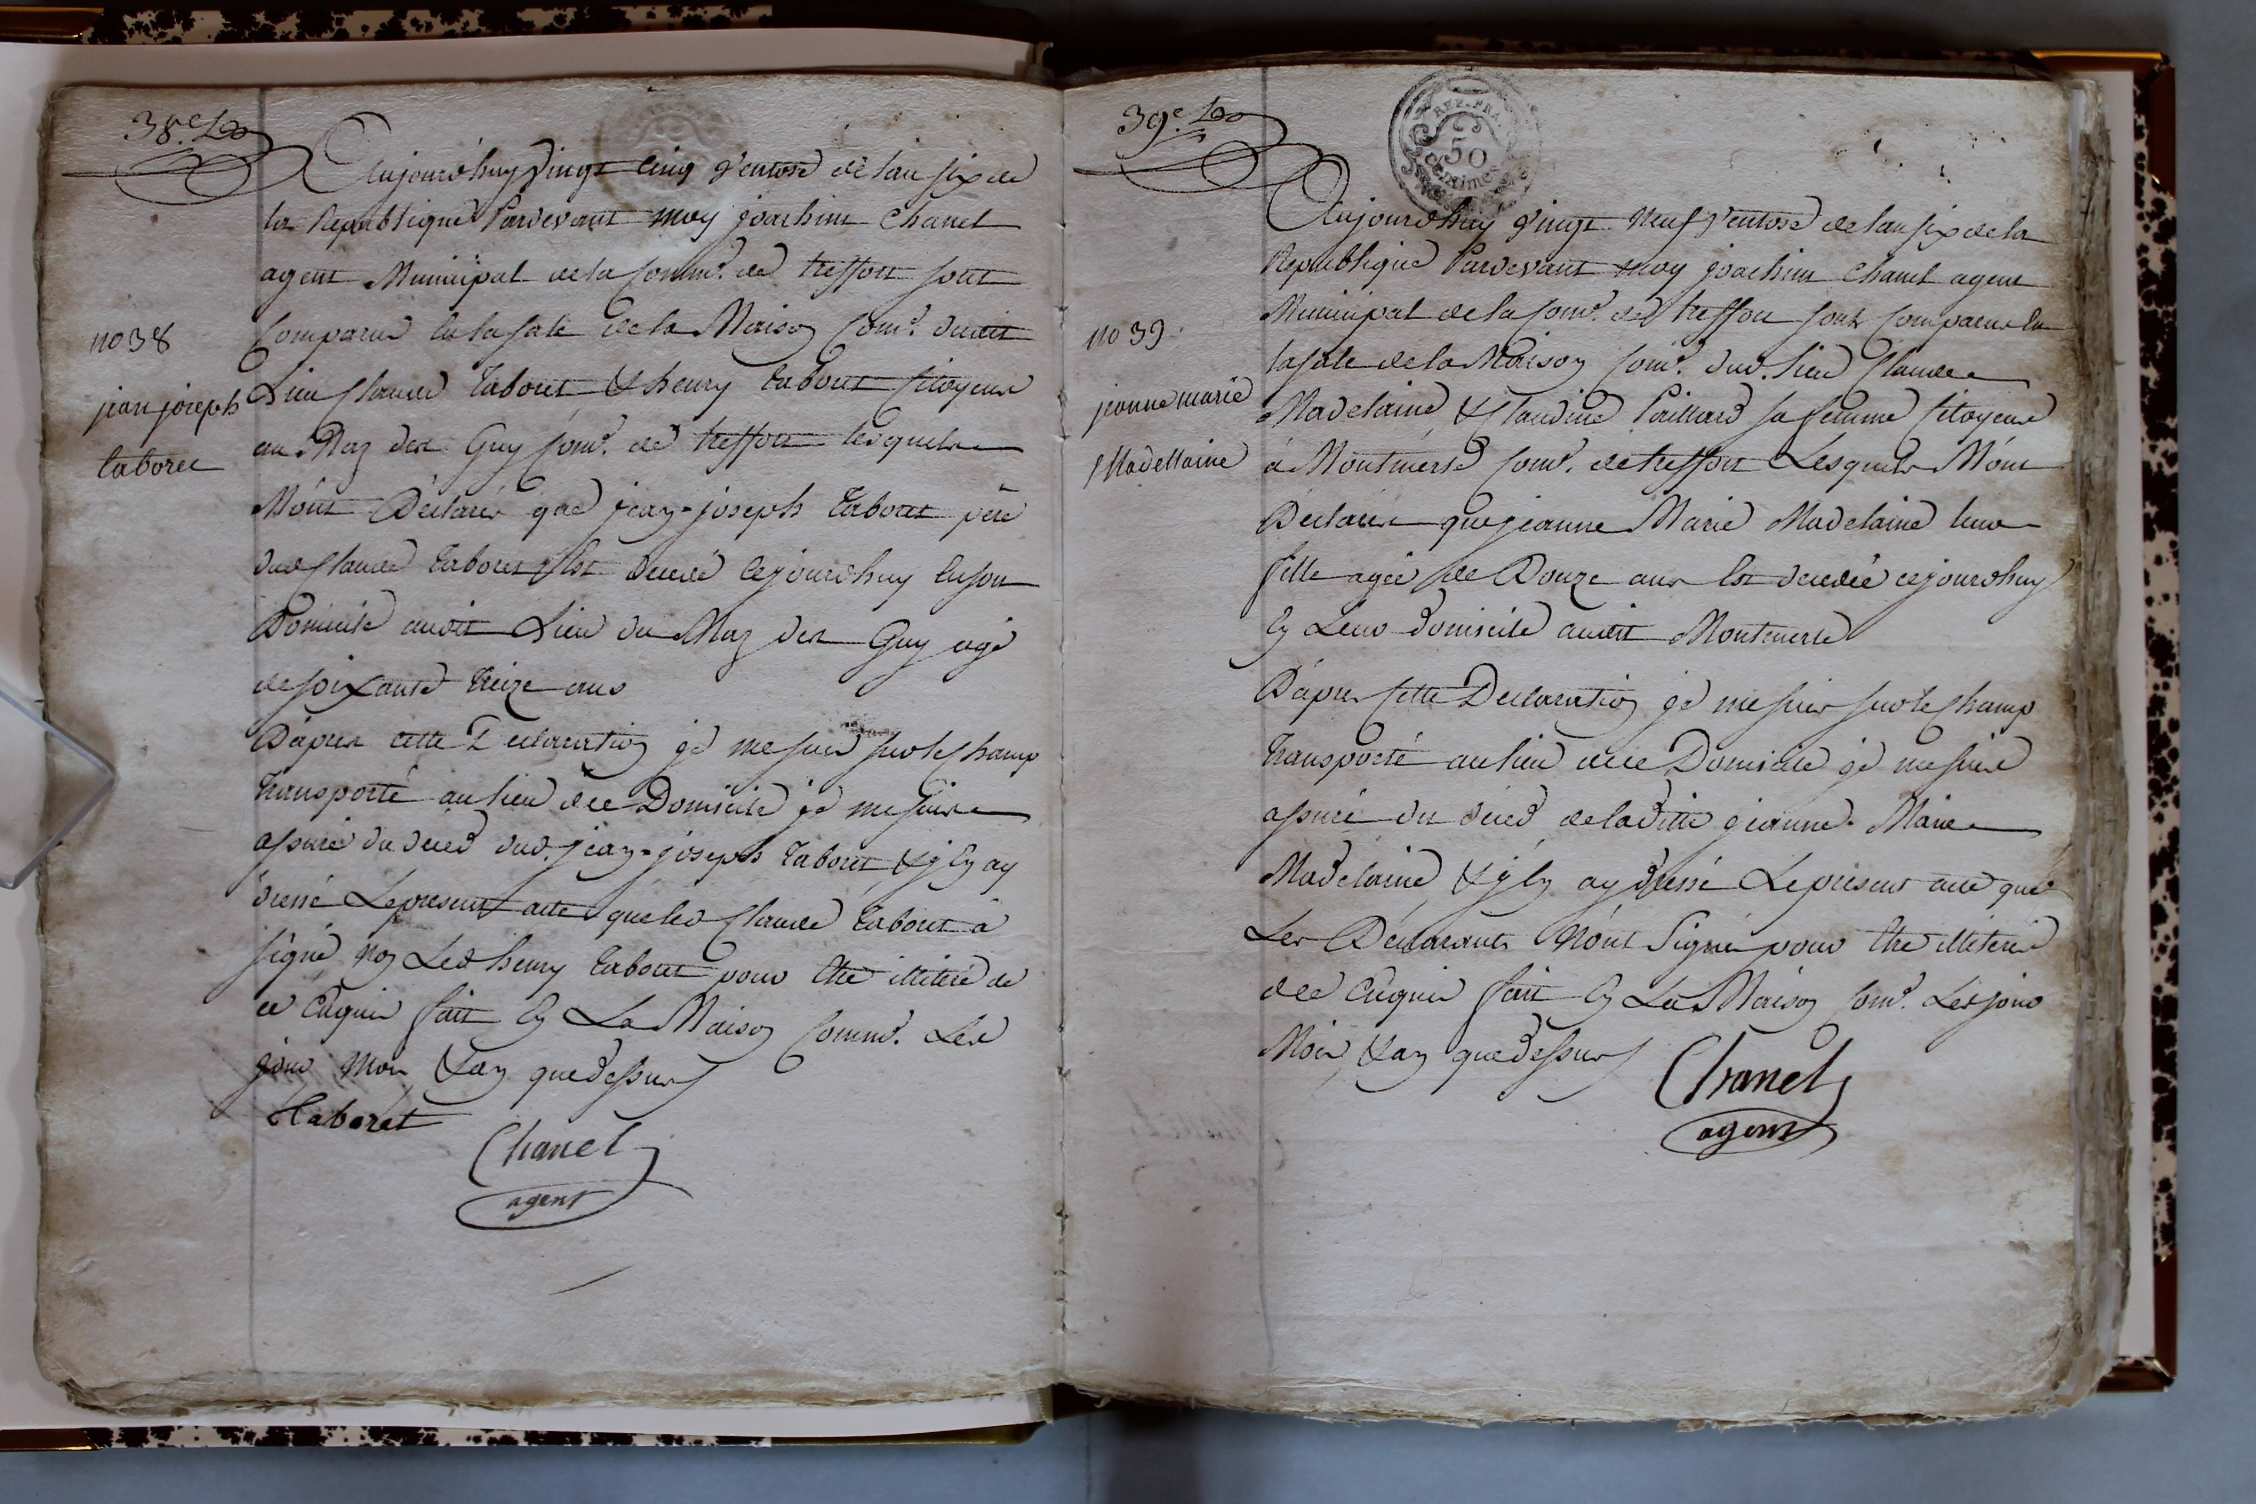 38e
Aujourd'huy vingt cinq ventose de l'an six de
la Republique Pardevant moy joachim Chanel
agent Municipal de la Comme. de treffort sont
no 38
Comparus en la sale de la Maison Come. dudit
Lieu Claude Taboret & henry taboret Citoyens
jean joseph
au Maz des Guy Come. de treffort lesquels
taboret
M'ont Déclarés que jean-joseph Taboret père
dud Claude taboret est decedé cejourdhuy en son
Domicile audit Lieu du Maz des Guy agé
de soixante treize ans
D'après cette Declaration je me suis sur le Champ
transporté au lieu dece Domicile je me suis
assuré du deced dud. jean-joseph Taboret & j'en ay
dressé Le present acte que led Claude taboret à
signé non Led henry taboret pour être illiteré de
ce Enquis fait en La Maison Comme. Les
jour Mois & an que dessus
Taboret
Chanel
agent
39e
REP. FRA.
50
Centimes
Aujourdhuy vingt Neuf ventose de l'an six de la
Republique Pardevant moy joachim Chanel agent
Municipal de la Come. de treffort sont comparus en
no 39.
la sale de la Maison Come. dud. Lieu Claude
jeanne marie
Madelaine & Claudine Paillard sa femme Citoyens
Madellaine
à Montmerle Come. de treffort Lesquels M'ont
Déclarés que jeanne Marie Madelaine leur
fille agée de Douze ans est decedée cejourdhuy
en Leur domicile audit Montmerle
D'après Cette Declaration je me suis sur le Champ
transporté au lieu dece Domicile je me suis
assuré du deced de ladite jeanne Marie
Madelaine & j'en ay dressé Le present acte que
Les Déclarants N'ont Signé pour être illiterés
de ce Enquis fait en La Maison Come. Les jour
Mois & an que dessus
Chanel
agent